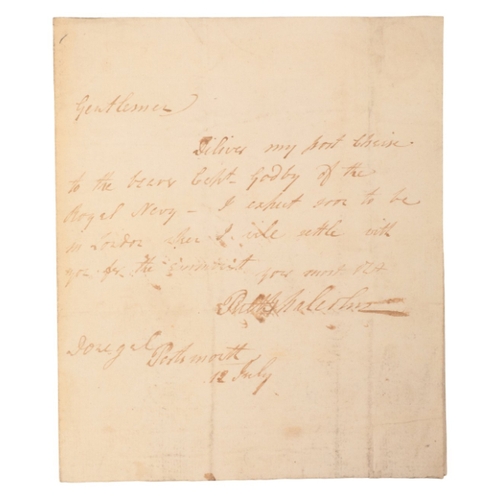 Gentlemen
Diliver my post Chaise
to the bearer Capt. Godby of the
Royal Navy - I expect soon to be
in London when I will settle with
you for the
your most &c
Pultny Malcolm
Donegal Portsmouth
12 July